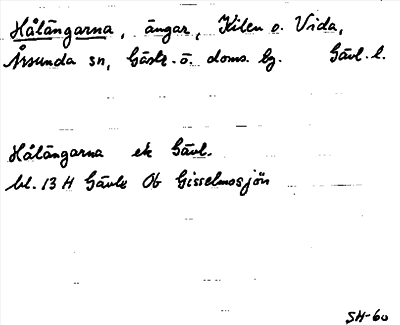 Hålängarna, ängar, Kilen o. Vida,
Årsunda sn, Gästr. ö. doms. lg. Gävl. l.
Hålängarna ek Gävl.
bl. 13 H Gävle Ob Gisselmosjön
SH-60